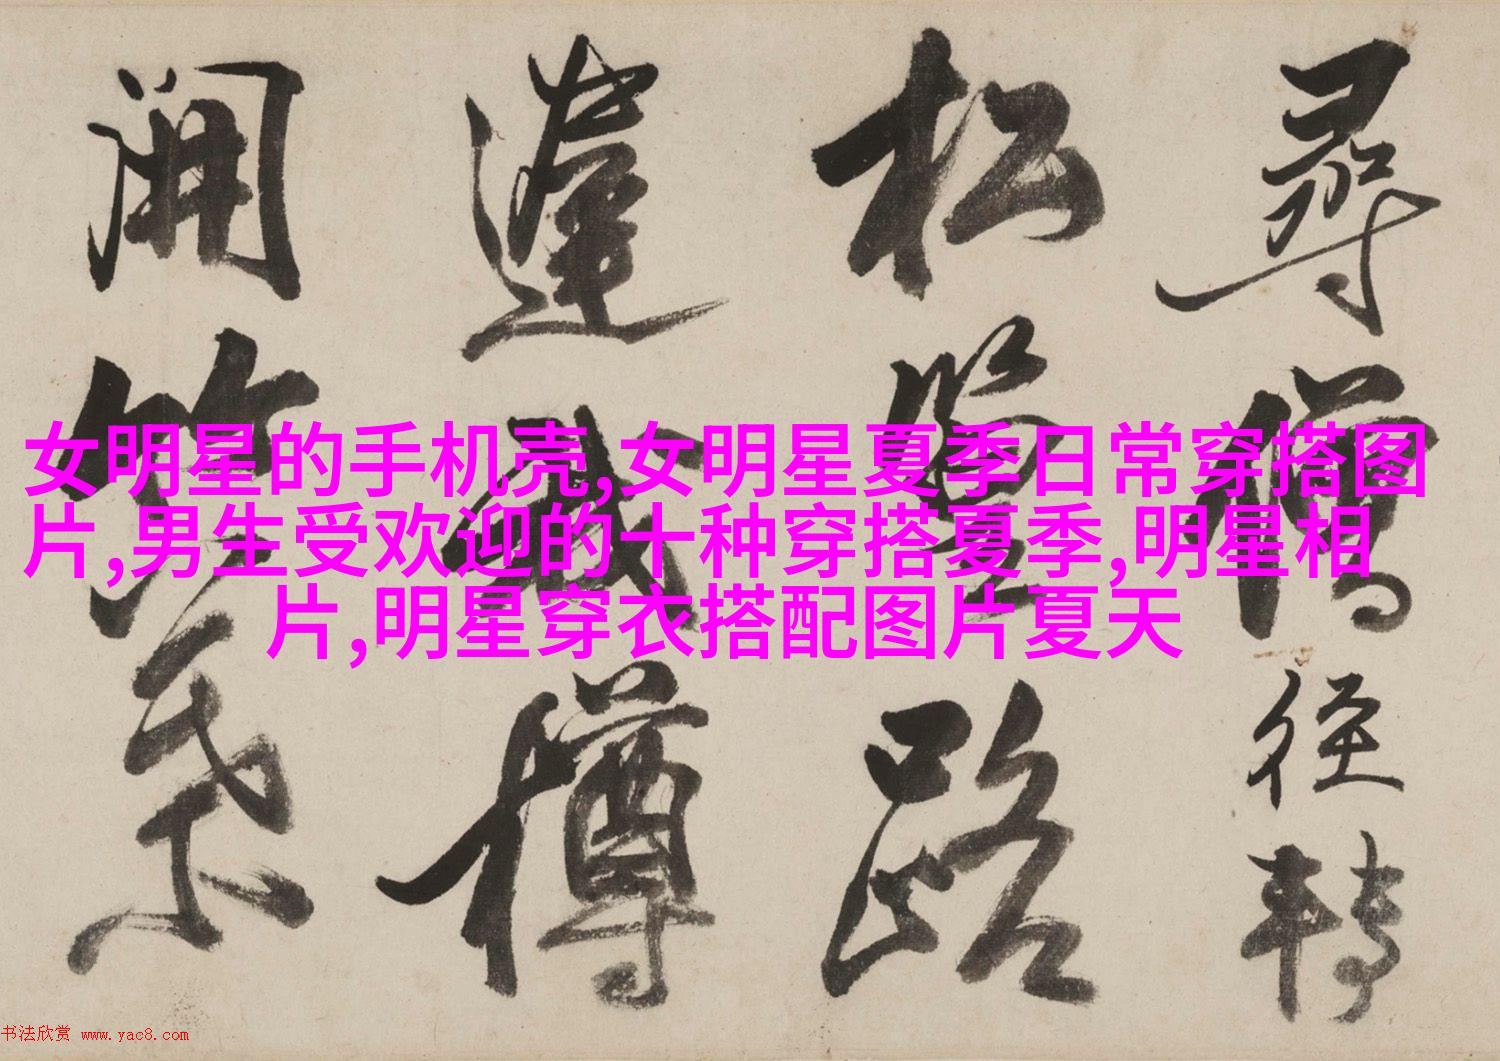 女明星的手机壳,女明星夏季日常穿搭图
片,男生受欢迎的十种穿搭夏季,明星相
片,明星穿衣搭配图片夏天
尋僧徑轉
松路
樽
開
书法欣赏 www.yac8.com